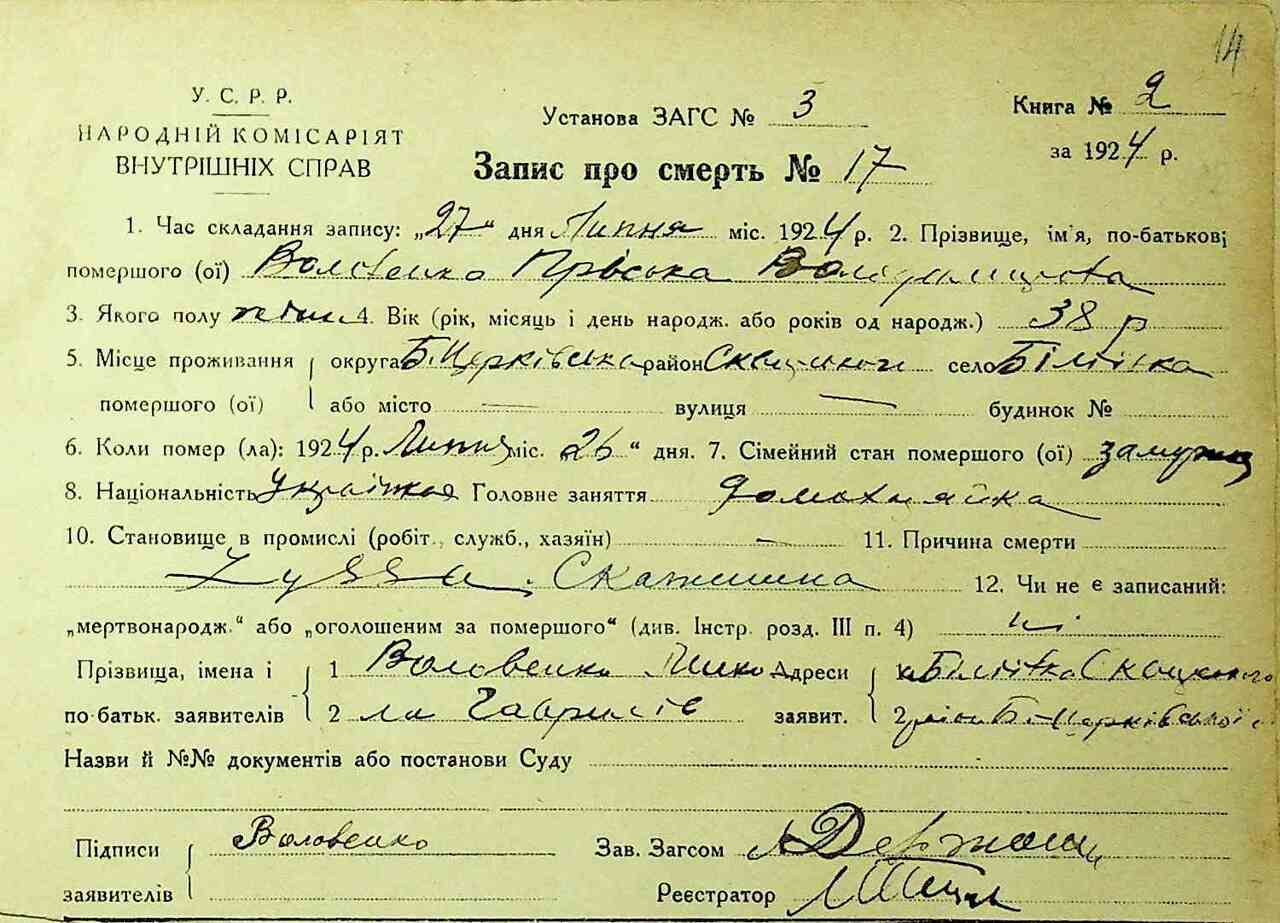 14
У. С. Р. Р.
НАРОДНІЙ КОМІСАРІЯТ
ВНУТРІШНІХ СПРАВ
Установа ЗАГС № 3
Книга № 2
за 1924 р.
Запис про смерть № 17
1. Час складання запису: „27“ дня Липня міс. 1924 р. 2. Прізвище, ім'я, по-батькові
помершого (ої) Воловенко Пріська
3. Якого полу жін. 4. Вік (рік, місяць і день народж. або років од народж.) 38 р
5. Місце проживання округа Б. Церківська район село Біліївка
помершого (ої) або місто — вулиця — будинок №
6. Коли помер (ла): 1924 р. Липня міс. 26“ дня. 7. Сімейний стан помершого (ої) замужня
8. Національність Українка Головне заняття домохазяйка
10. Становище в промислі (робіт., служб., хазяїн) — 11. Причина смерти
Lyssa. Скаженина 12. Чи не є записаний:
„мертвонародж.“ або „оголошеним за помершого“ (див. Інстр. розд. III п. 4) ні
Прізвища, імена і 1 Воловенко Мико Адреси
по-батьк. заявителів 2 ла Гаврилів заявит. 2 Б-Церківської
Назви й №№ документів або постанови Суду
Підписи Воловенко Зав. Загсом
заявителів Реєстратор